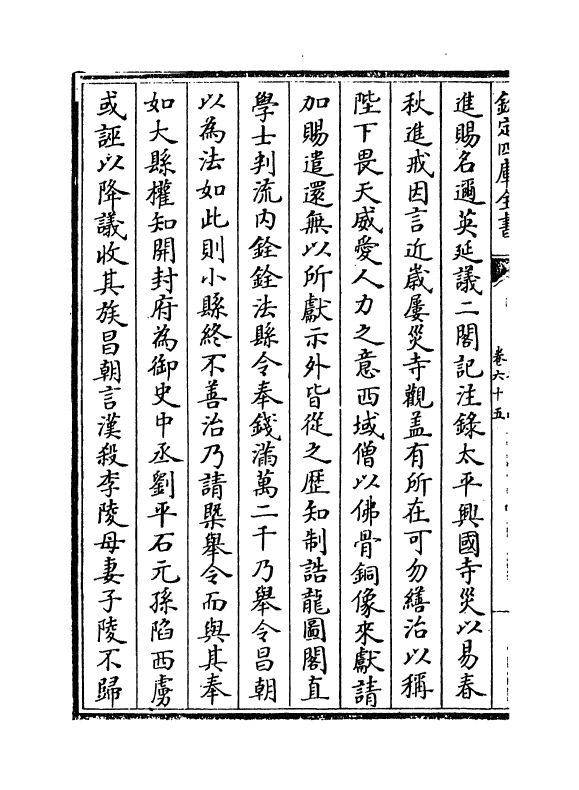 欽定四庫全書
卷六十五
進賜名邇英延議二閣記注錄太平興國寺災以易春
秋進戒因言近歲屢災寺觀盖有所在可勿繕治以稱
陛下畏天威愛人力之意西域僧以佛骨銅像來獻請
加賜遣還無以所獻示外皆從之歴知制誥龍圖閣直
學士判流内銓銓法縣令奉錢滿萬二千乃舉令昌朝
以為法如此則小縣終不善治乃請槩舉令而與其奉
如大縣權知開封府為御史中丞劉平石元孫陷西虜
或誣以降議收其族昌朝言漢殺李陵母妻子陵不歸